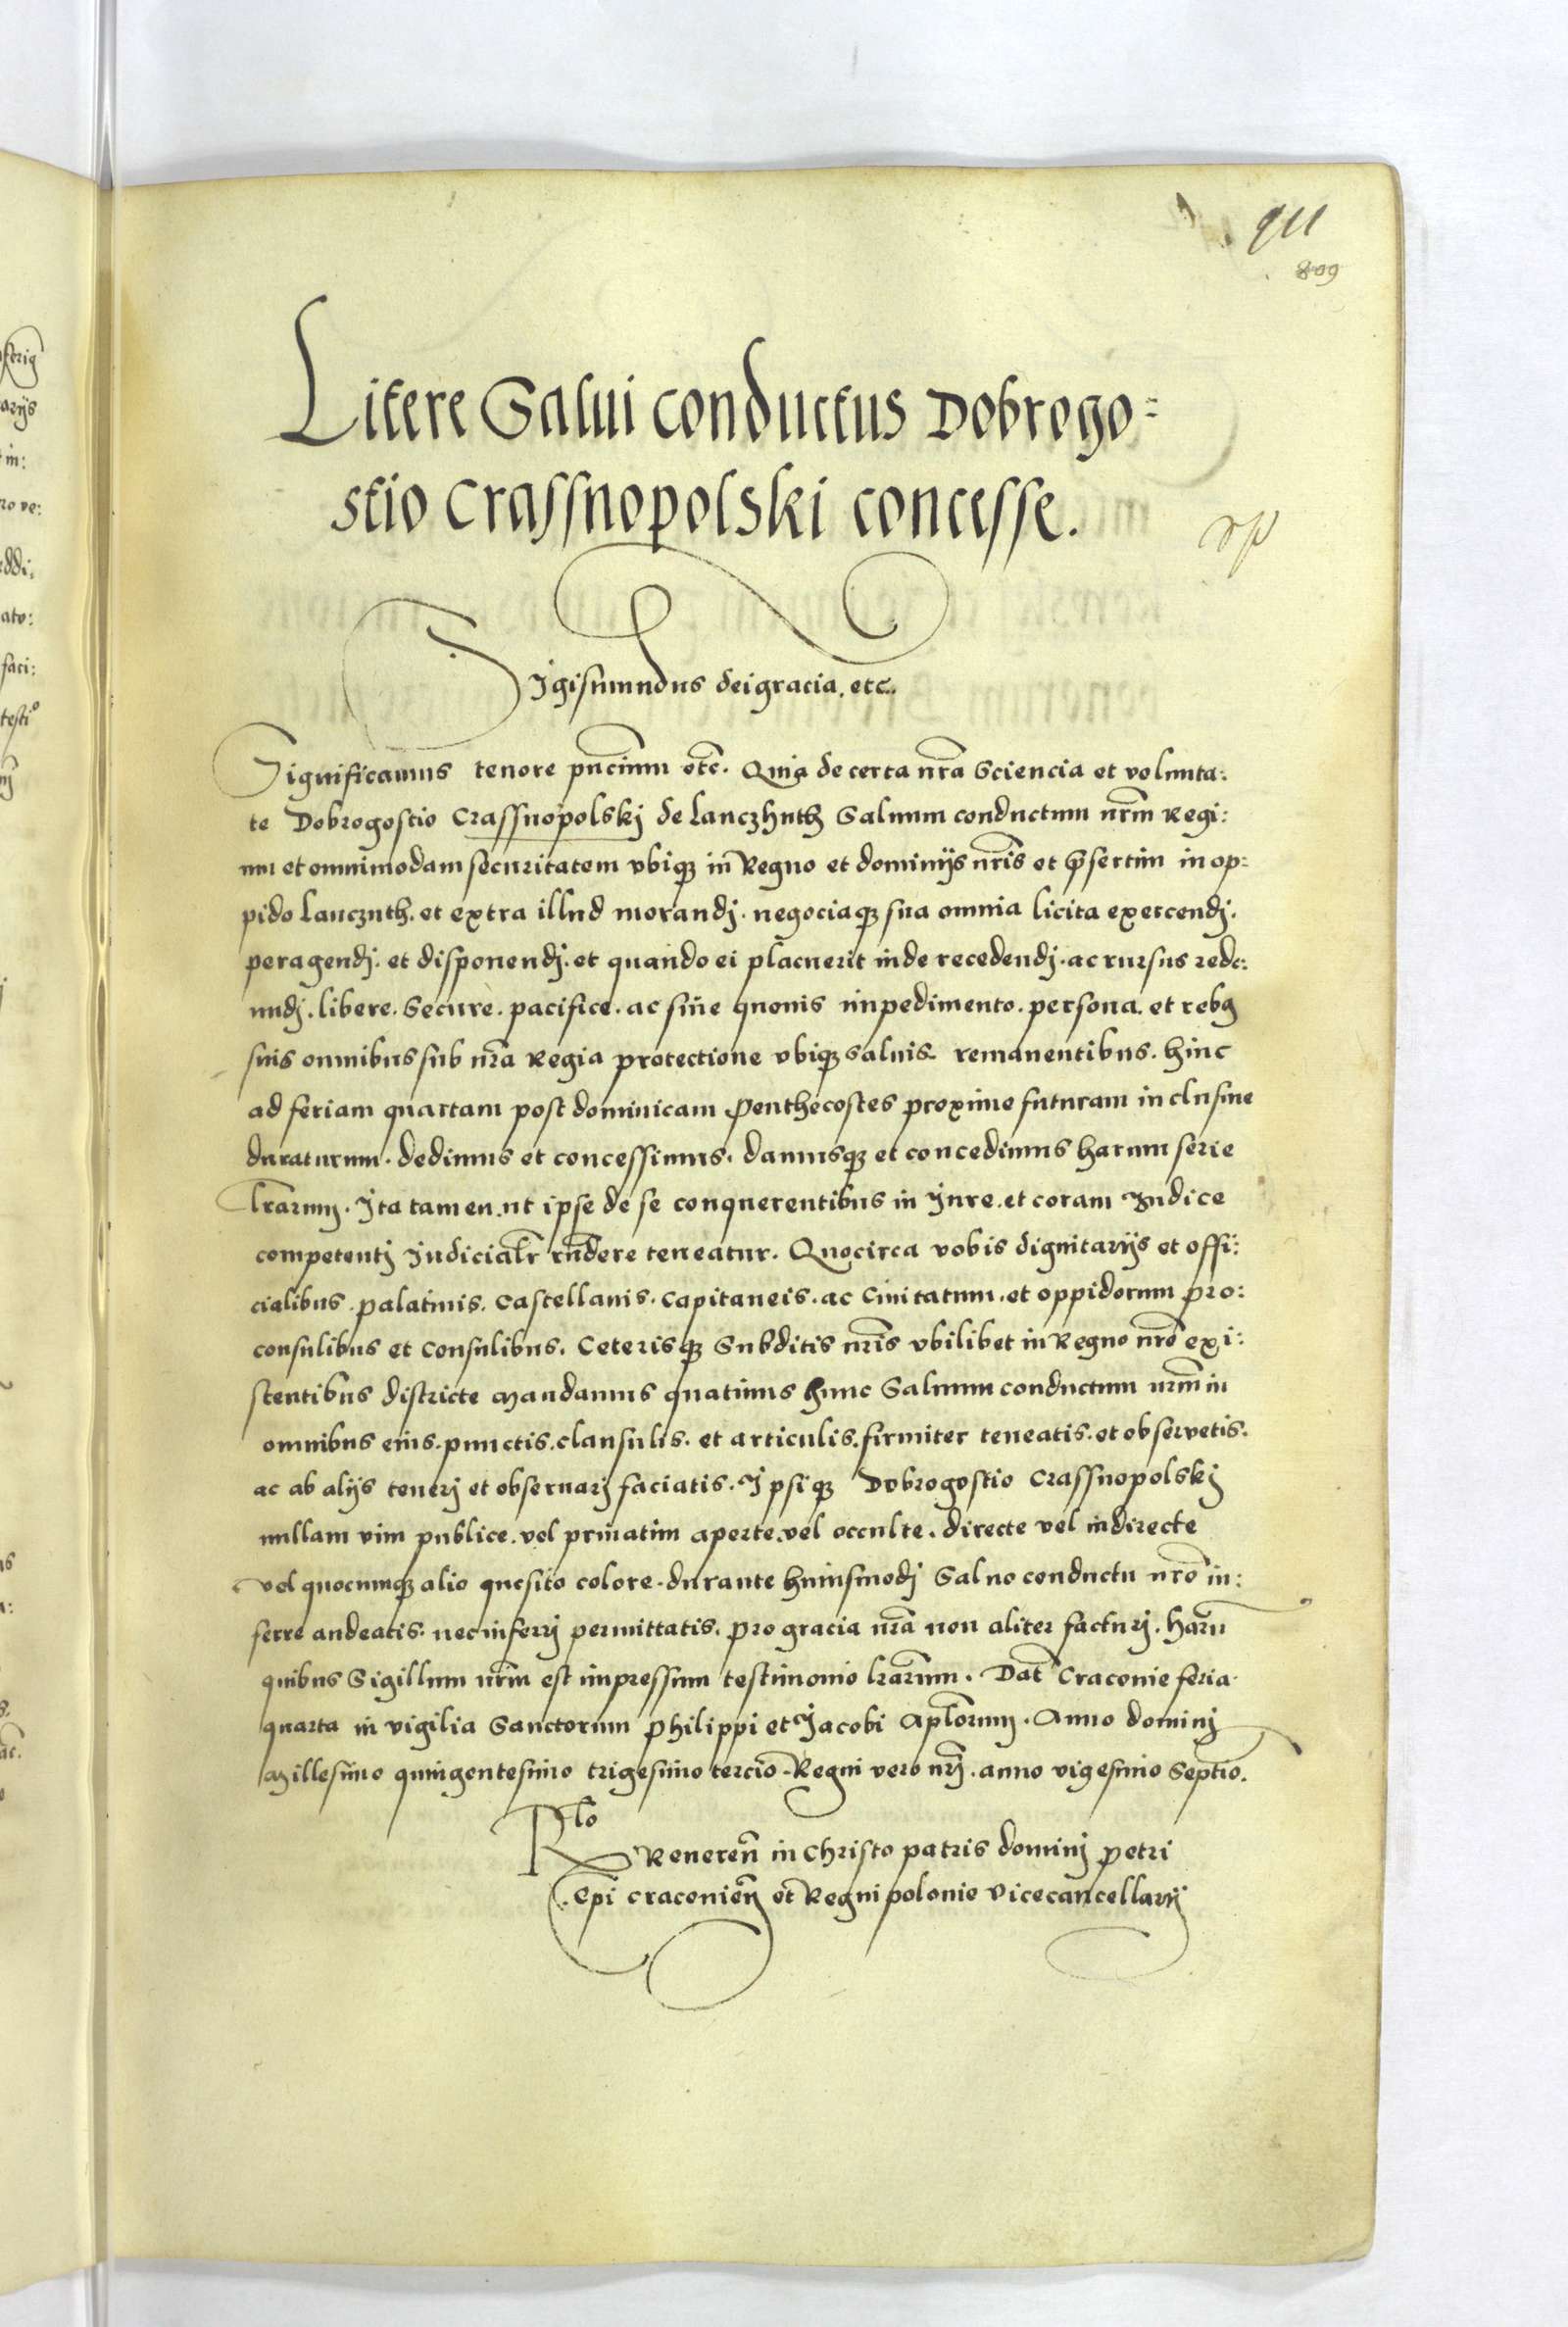 911
809
Litere Salui conductus Dobrogo=
stio Crassnopolski concesse.
Sigismundus dei gracia. etc.
Significamus tenore pñcium etc̃. Quia de certa nr̃a Sciencia et volunta:
te Dobrogostio Crassnopolskj de Lanczhuth Saluum conductum nr̃m Regi:
um et omnimodam securitatem vbiqȝ in Regno et dominijs nr̃is et p̃sertim in op:
pido Lanczuth. et extra illud morandj. negociaqȝ sua omnia licita exercendj.
peragendj. et disponendj. et quando ei placuerit inde recedendj. ac rursus rede:
undj. libere. Secure. pacifice. ac sine quouis impedimento. persona. et rebꝫ
suis omnibus sub nr̃a Regia protectione vbiqȝ saluis. remanentibus. hinc
ad feriam quartam post dominicam Penthecostes proxime futuram inclusiue
duraturum. dedimus et concessimus. damusqȝ et concedimus harum serie
lr̃arum. Ita tamen. ut ipse de se conquerentibus in Jure. et coram Judice
competentj Judicialr̃ rñdere teneatur. Quocirca vobis dignitarijs et offi:
cialibus. palatinis. Castellanis. Capitaneis. ac Ciuitatum. et oppidorum pro:
consulibus et Consulibus. Ceterisqȝ Subditis nr̃is vbilibet in Regno nr̃o exi:
stentibus districte Mandamus quatinus hunc Saluum conductum nr̃m in
omnibus eius. punctis. clausulis. et articulis. firmiter teneatis. et obseruetis.
ac ab alijs tenerj et obseruarj faciatis. Ipsiqȝ Dobrogostio Crassnopolskj
nullam vim publice. vel priuatim aperte. vel occulte. directe vel indirecte
vel quocumqȝ alio quesito colore. durante huiusmodj Saluo conductu nr̃o in:
ferre audeatis. nec inferrj permittatis. pro gracia nr̃a non aliter facturj. Harũ
quibus Sigillum nr̃m est impressum testimonio lr̃arum. Dat̃ Craconie feria
quarta in vigilia Sanctorum Philippi et Jacobi Apl̃orum. Anno dominj
Millesimo quingentesimo trigesimo tercio. Regni vero nr̃j. anno vigesimo Septĩo.
Rlo
Reueren̄ in Christo patris dominj Petri
Ep̃i Cracouien̄ et Regni polonie Vicecancellarij